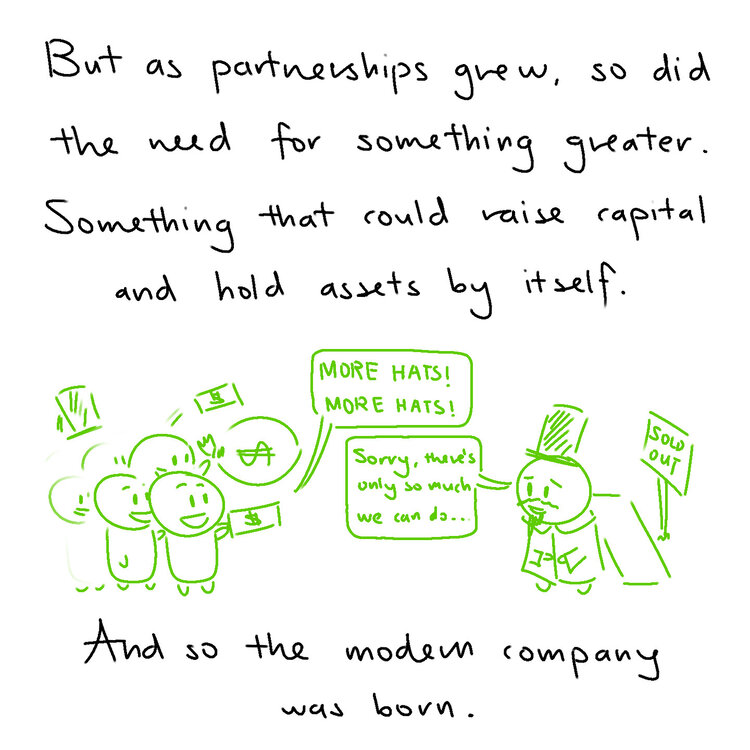 But as partnerships grew, so did
the need for something greater.
Something that could raise capital
and hold assets by itself.
MORE HATS!
MORE HATS!
$
$
$
Sorry, there's
only so much
we can do...
SOLD
OUT
And so the modern company
was born.